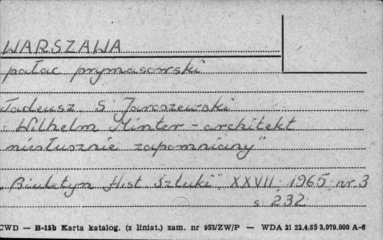 WARSZAWA
pałac prymasowski
Tadeusz S Jaroszewski
"Wilhelm Minter - architekt
niesłusznie zapomniany"
"Biuletyn Hist Sztuki", XXVII, 1965 nr 3
s 232
CWD — B-15b Karta katalog. (z liniat.) zam. nr 952/ZW/P — WDA 21 22.4.65 3.070.000 A-6